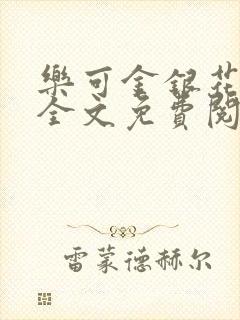 樂可金銀花
全文免費閱
雷蒙德赫尔